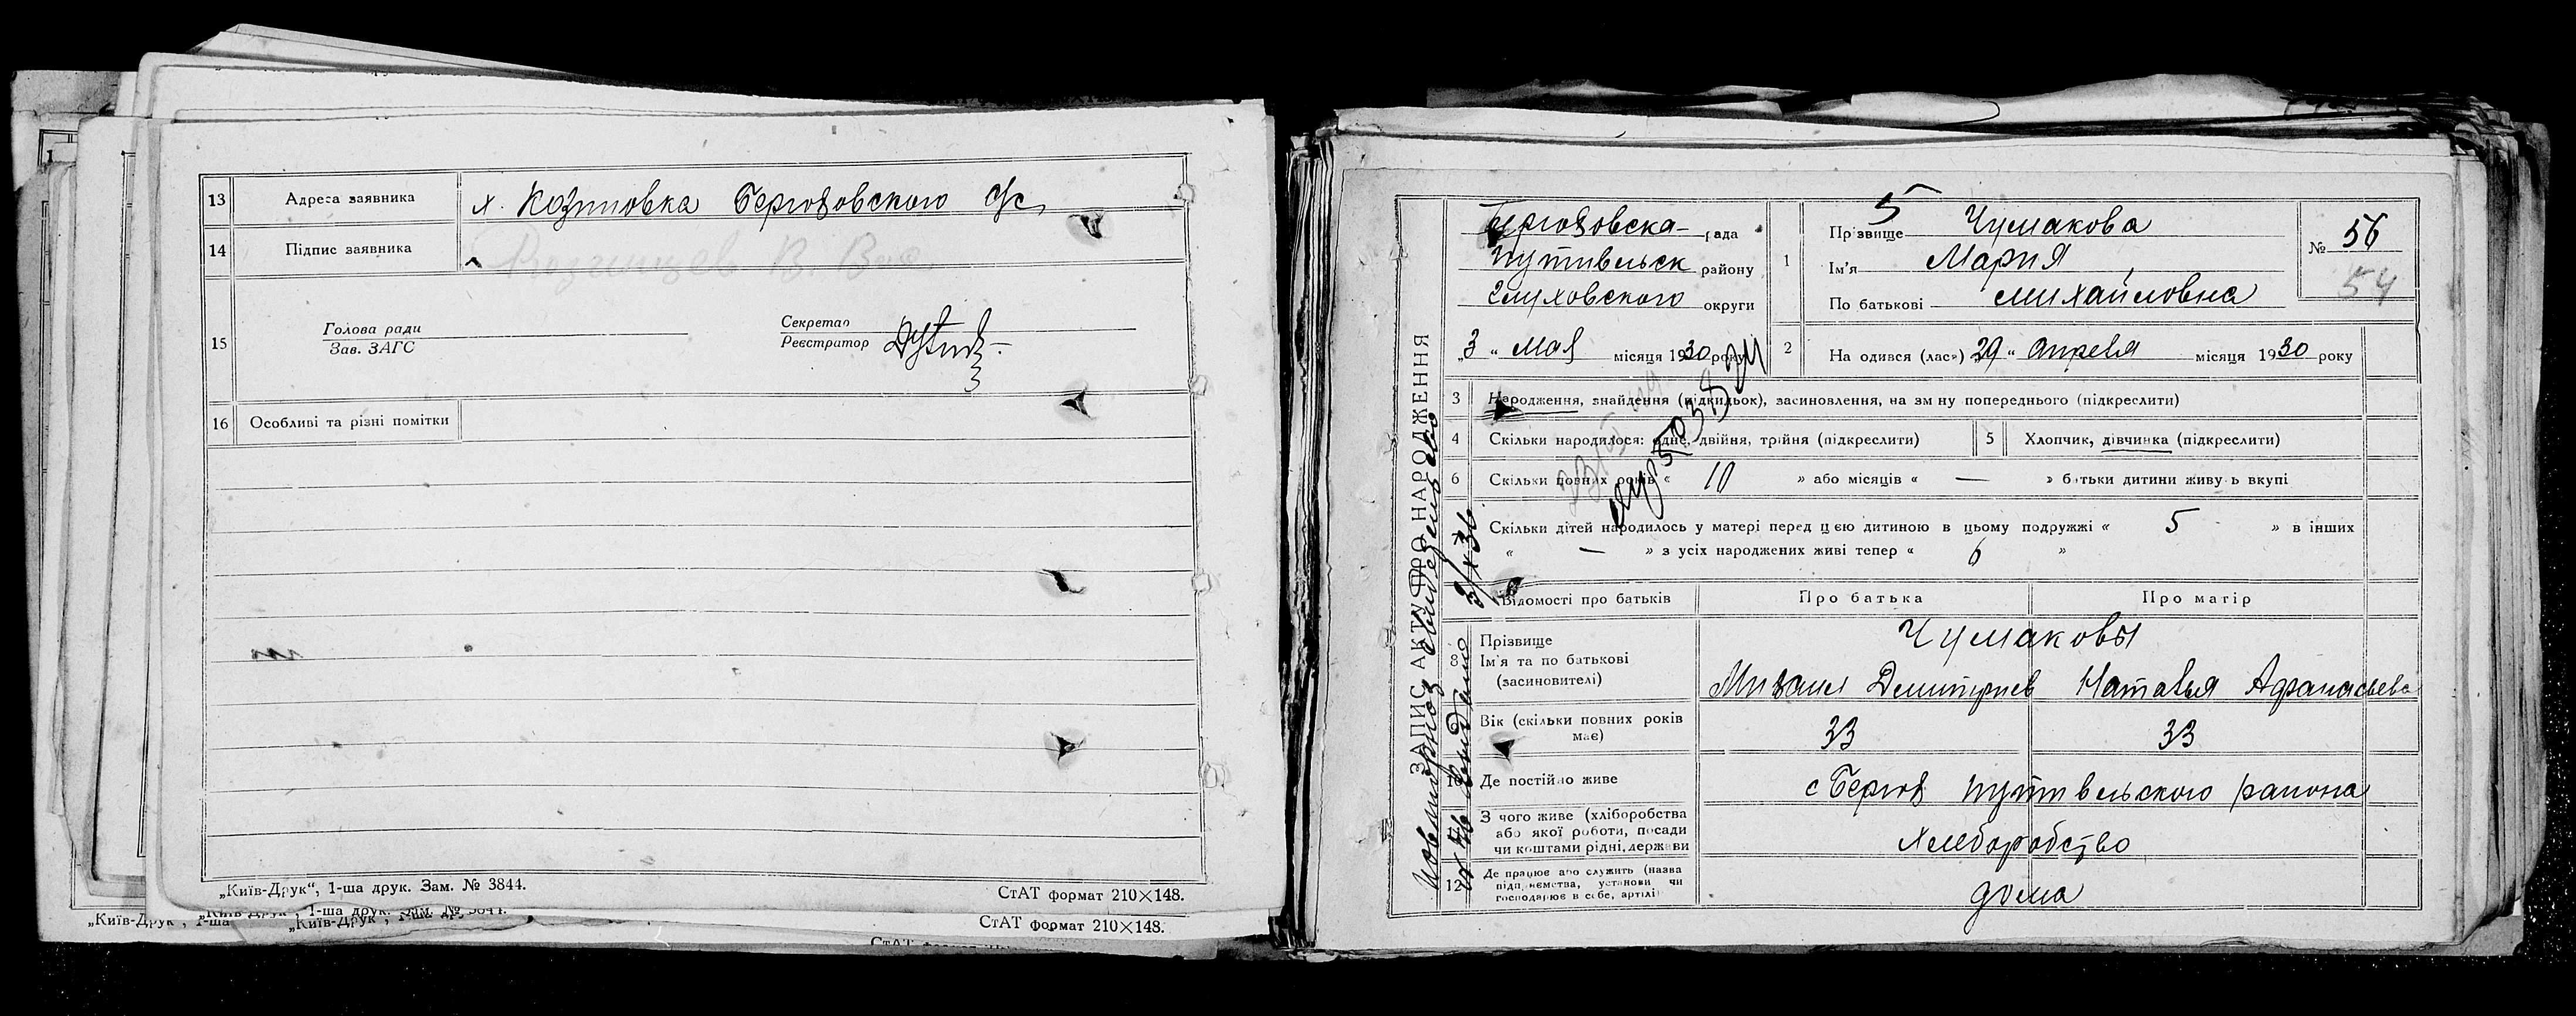 13 Адреса заявника х. Козтовка Берюховского с/с
14 Підпис заявника
15 Голова ради
Зав. ЗАГС
Секретар
Реєстратор
16 Особливі та різні помітки
„Київ-Друк“, 1-ша друк. Зам. № 3844.
СтАТ формат 210×148.
СтАТ формат 210×148.
ЗАПИС АКТУ ПРО НАРОДЖЕННЯ
Повторное свидетельство
выдано
3/IX 36
рада
Путивльск району
Глуховского округи
„3“ мая місяця 1930 року
1 Прізвище Чумакова
Ім'я Мария
По батькові Михайловна
№ 56
54
5
2 Народився (лась) 29 “ апреля місяця 1930 року
3 Народження, знайдення (підкидьок), засиновлення, на зміну попереднього (підкреслити)
4 Скільки народилося: одне, двійня, трійня (підкреслити)
5 Хлопчик, дівчинка (підкреслити)
6 Скільки повних років « 10 » або місяців « — » батьки дитини живуть вкупі
Скільки дітей народилось у матері перед цією дитиною в цьому подружжі « 5 » в інших
« — » з усіх народжених живі тепер « 6 »
Відомості про батьків Про батька Про матір
8 Прізвище
Ім'я та по батькові
(засиновителі)
Чумаковы
Михаил Дмитриев Наталья Афанасьева
Вік (скільки повних років
має)
33 33
10 Де постійно живе с Берюх Путивльского района
З чого живе (хліборобства
або якої роботи, посади
чи коштами рідні, держави
Хлеборобство
12 Де працює або служить (назва
підприємства, установи чи
господарює в себе, артілі
дома